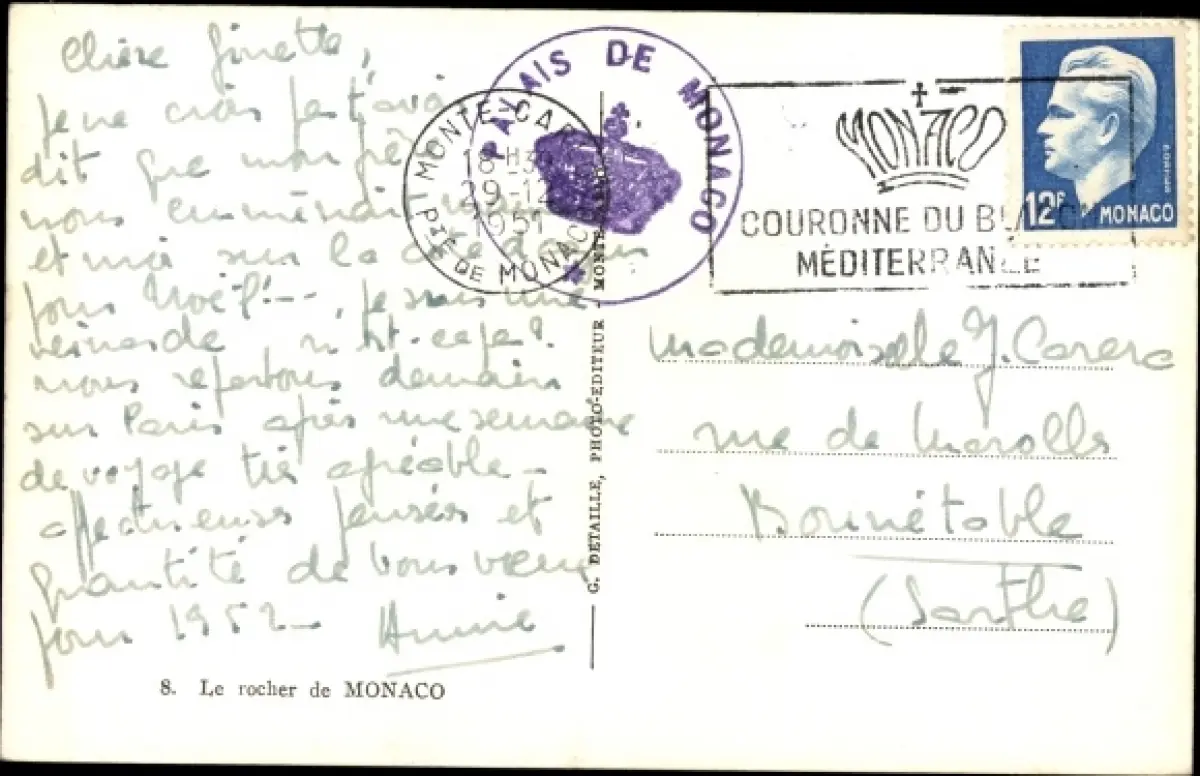 Chère Ginette,
je ne crois pas t'avoir
dit que mon père
nous emmenait
et moi sur la côte d'azur
pour Noël! -- , je suis une
veinarde n'est-ce pas?
nous repartons demain
sur Paris après une semaine
de voyage très agréable -
affectueuses pensées et
quantité de bons voeux
pour 1952 - Annie
8. Le rocher de MONACO
G. DETAILLE, PHOTO-EDITEUR - MONTE
PALAIS DE MONACO
MONTE-CARLO
18 H30
29-12
1951
PTÉ DE MONACO
MONACO
COURONNE DU BLANCHE
MÉDITERRANÉE
12F MONACO
Mademoiselle J.
rue de Marolles
Bonnétable
(Sarthe)